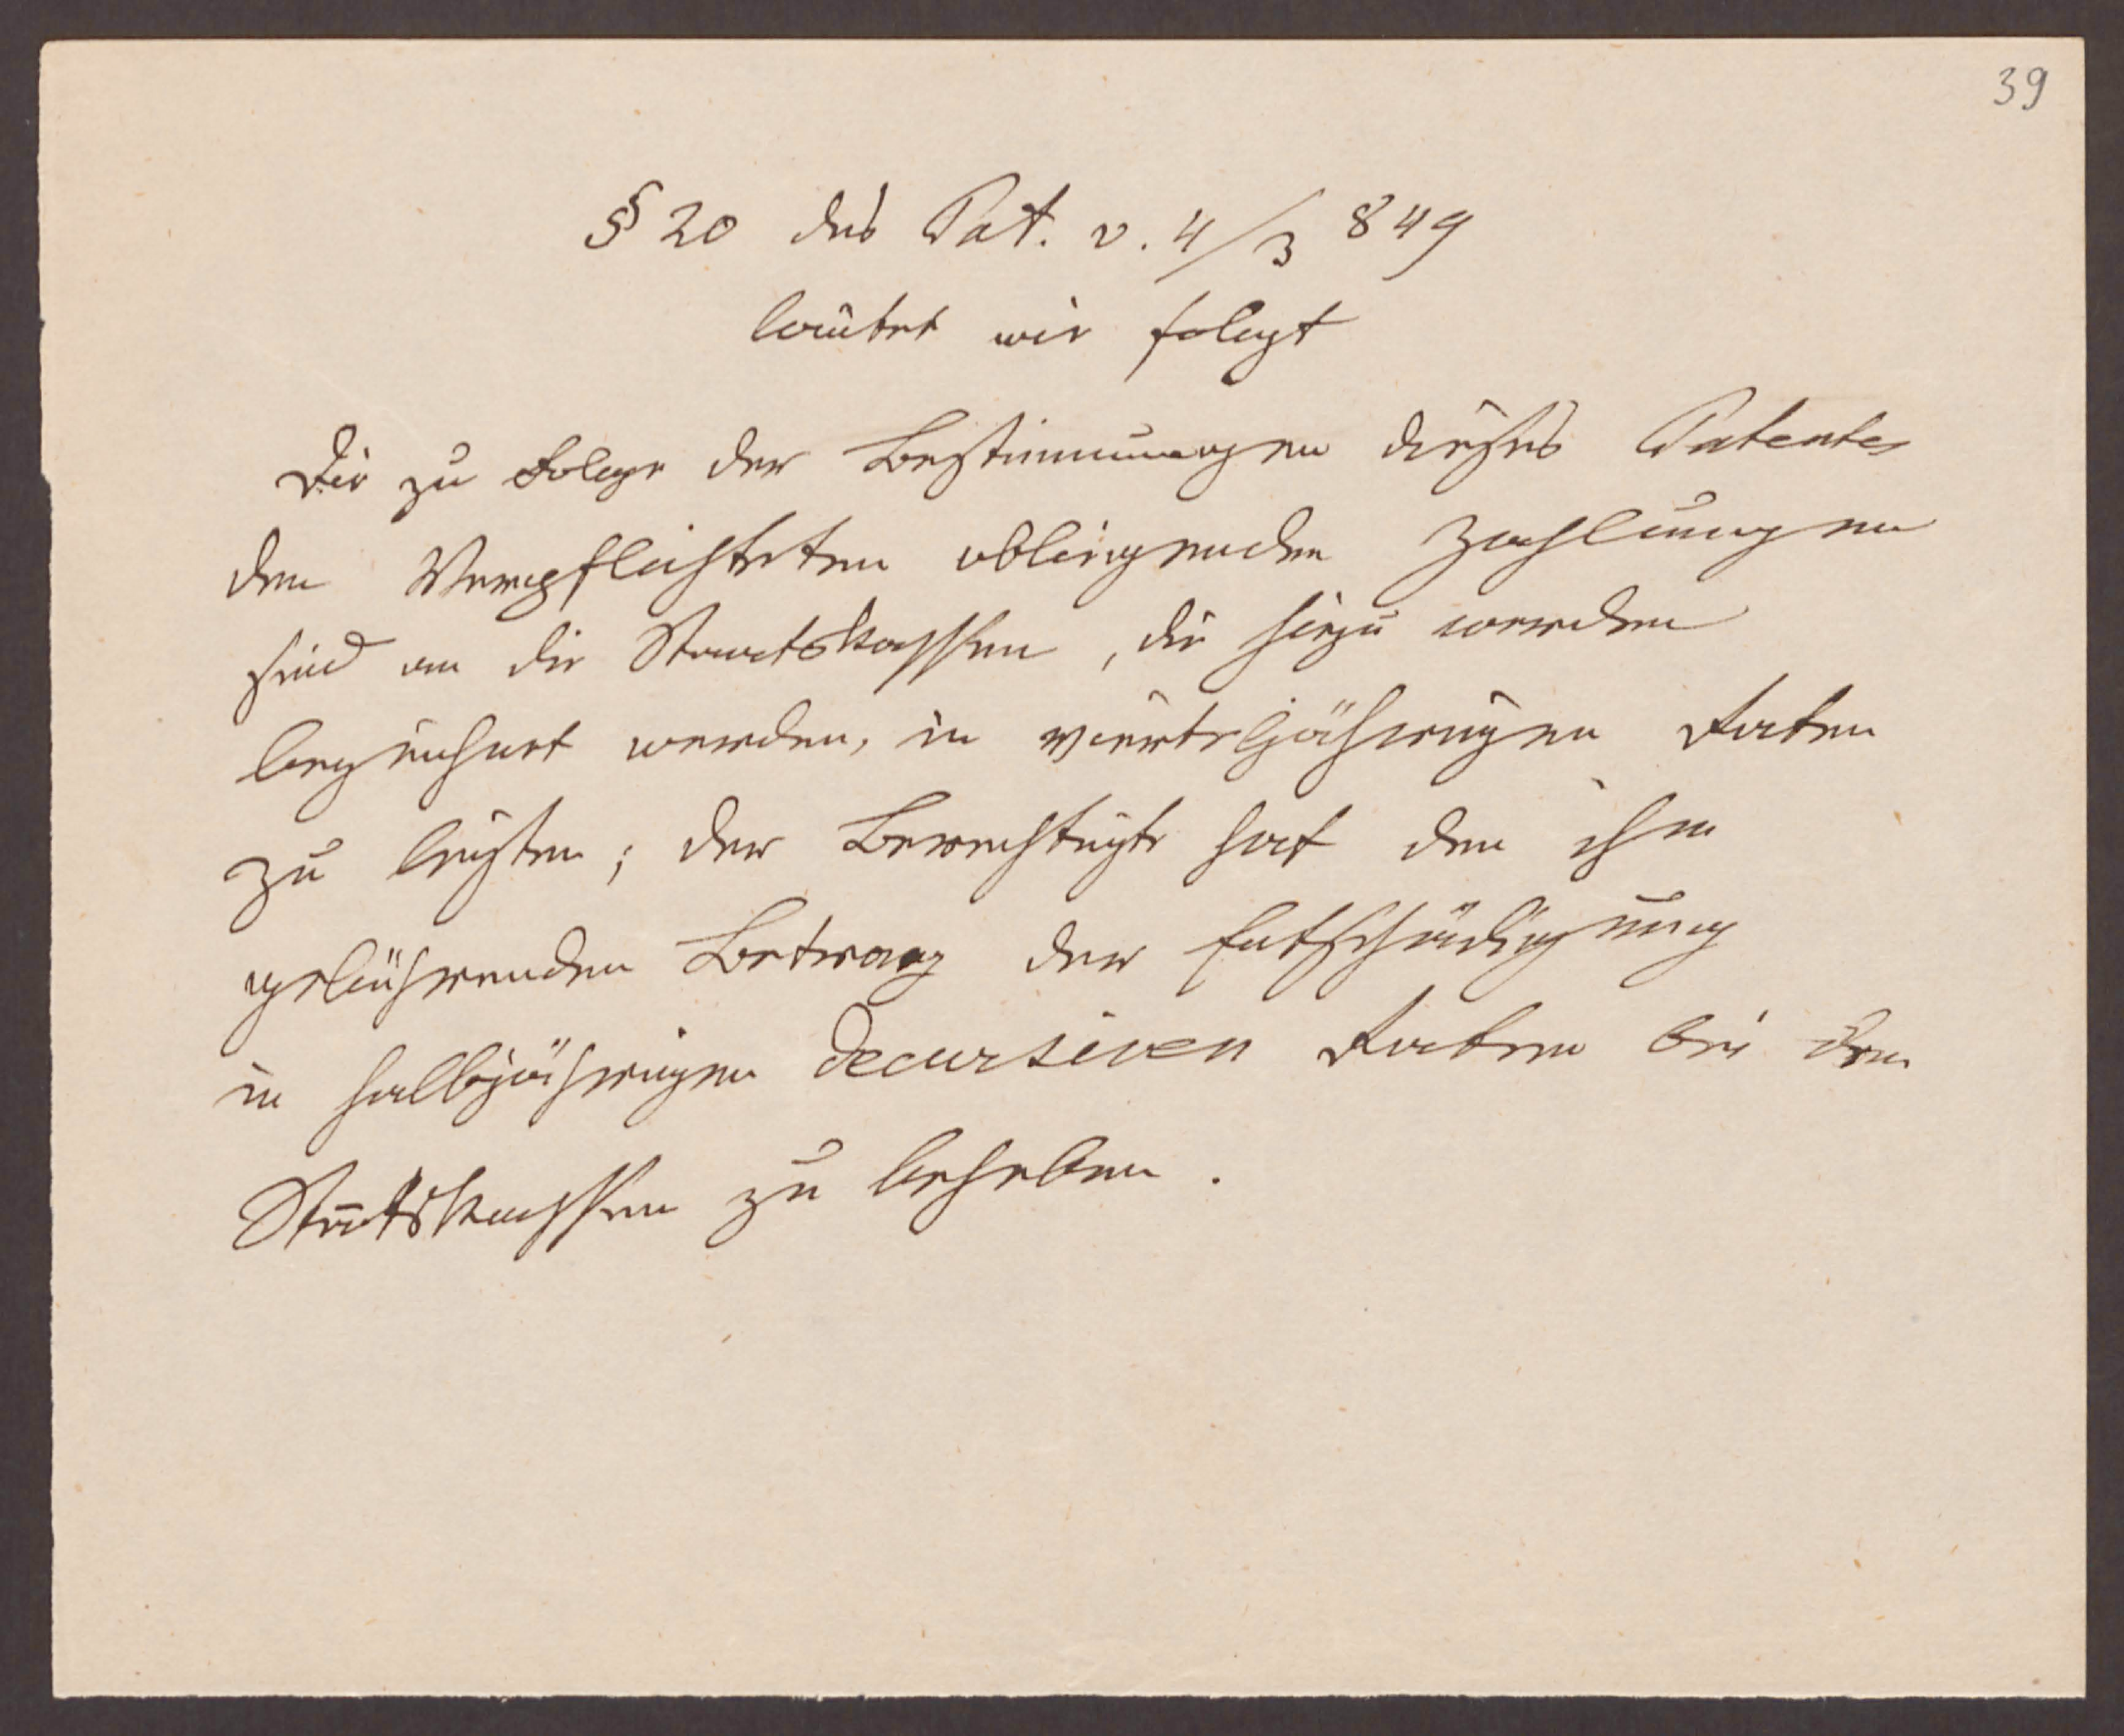 39
§ 20 des Pat. v. 4/3 849
lautet wie folgt
Die zu Folge der Bestimmungen dieses Patentes
den Verpflichteten obliegenden Zahlungen
sind an die Staatskassen, die hiezu werden
bezeichnet werden, in vierteljährigen Raten
zu leisten; der Berechtigte hat den ihm
gebührenden Betrag der Entschädigung
in halbjährigen decursiven Raten bei den
Staatskassen zu beheben.